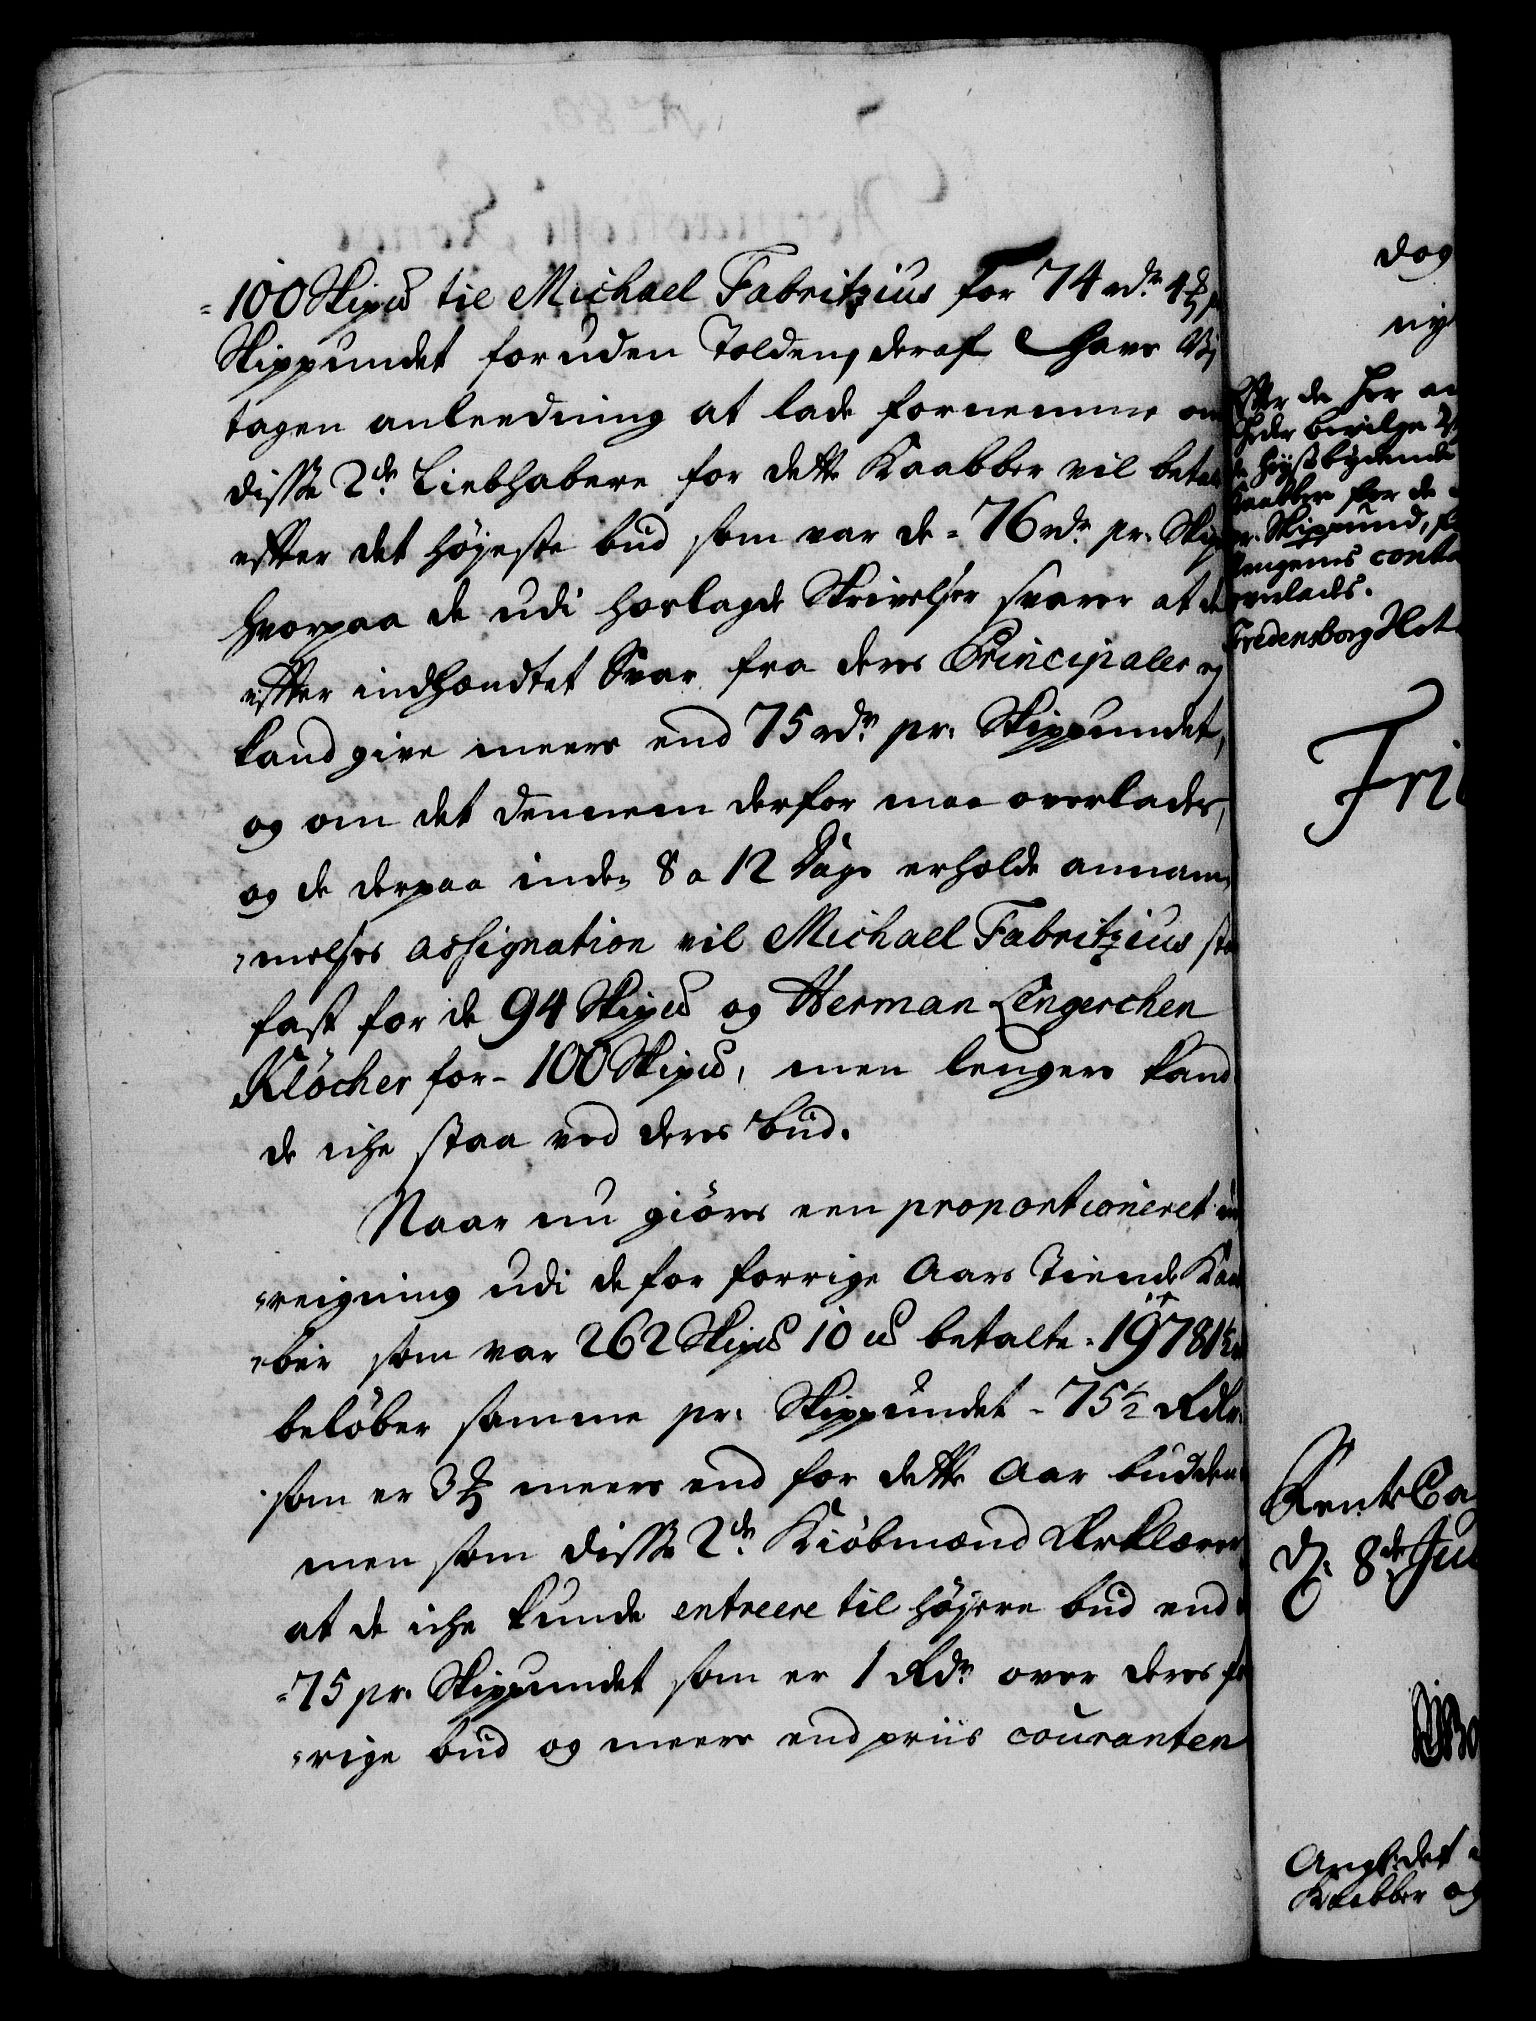 100 Skip℔ til Michael Fabritzius for 74 rdr 4 ß
Skippundet foruden Tolden, deraf haver Vi
tagen anleedning at lade fornemme om
disse 2de Liebhabere for dette Kaabber vil betale
efter det højeste bud som var de 76 rdr pr: Skip
hvorpaa de udi hoslagde Skrivelser svarer at de
efter indhændtet Svar fra deres Principaler ej
kand give meere end 75 rdr pr: Skippundet,
og om det dennem derfor maa overlades,
og de derpaa inden 8 a 12 Dage erholde annam,
melses assignation vil Michael Fabritzius staa
fast for de 94 Skip℔ og Herman Lengerchen
Klöcher for 100 Skip℔, men lengere kand
de iche staa ved deres bud.
Naar nu giøres een proportioneret
reigning udi de for forrige Aars Tiende Kaa
ber som var 262 Skip℔ 10 ℔ betalte 19781½
beløber samme pr: Skippundet 75½ Rdr
som er 3 ß meere end for dette Aar budden
men som disse 2de Kiøbmænd Erklærer
at de iche kunde entreere til højere bud end
75 pr. Skippundet som er 1 Rdr over deres for
rige bud og meere end priis couranten
dog
ny
Efter de her an
heder bevilge Vi
høystbydende
Kaabber for de
pr. Skippund,
Pengenis conta
overlades.
Fredensborg Slot
Fri
RenteCa
D. 8de Jul
Angl: det
Kaabber og